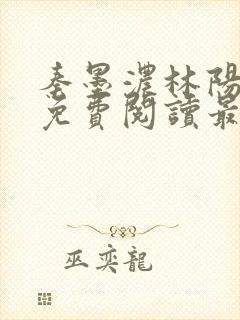 秦墨濃林陽
免費閱讀最
巫奕龍